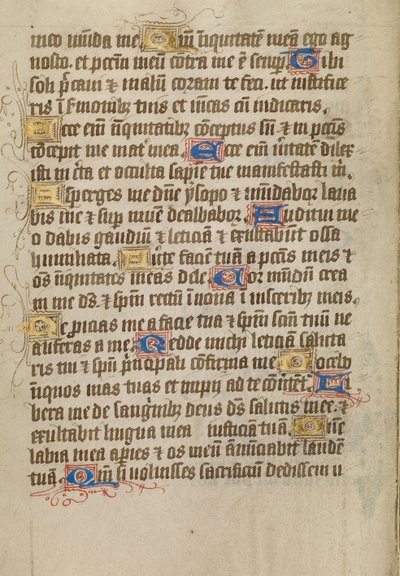 meo munda me. Qm̄ iniquitatē meā ego ag
nosco. et pccm̄ meū cōtra me ē semp̄. Tibi
soli p̄caui ⁊ malū coram te feci. ut iustifice
ris ī s̄monibꝫ tuis et uincas cū iudicaris.
Ecce em̄ iniquitatibꝫ cōceptus sū ⁊ in pccīs
cōcepit me mat̄ mea. Ecce em̄ uitatē dilex
isti incerta et occulta sapiē tue manifestasti m̄.
Asperges me dn̄e ysopo ⁊ mūdabor laua
bis me ⁊ sup̄ niuē dealbabor. Auditui me
o dabis gaudiū ⁊ leticiā ⁊ exultabūt ossa
humiliata. Auerte faciē tuā a pccīs meis ⁊
om̄s iniquitates meas dele. Cor mūdū crea
in me ds̄ ⁊ sp̄m rectū īnoua ī uiscerībꝫ meis.
Ne proicias me a facie tua ⁊ sp̄m scm̄ tuū ne
auferas a me. Redde michi leticiā saluta
ris tui ⁊ sp̄u p̄ncipali cōfirma me. Docebo
iniquos uias tuas et impii ad te cōūtent̄. Li
bera me de sanguībꝫ deus ds̄ salutis mee. ⁊
exultabit lingua mea iusticiā tuā. Dn̄e
labia mea ap̄ies ⁊ os meū ānūciabit laudē
tuā. Qm̄ si uoluisses sacrificiū dedissem u